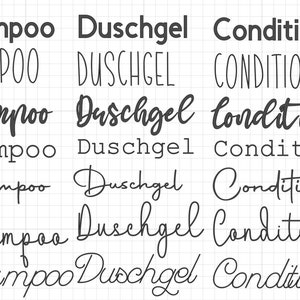 mpoo Duschgel Conditi
POO DUSCHGEL CONDITION
mpoo Duschgel Conditi
mpoo Duschgel Condit
mpoo Duschgel Conditi
ampoo Duschgel Conditi
ampoo Duschgel Conditi